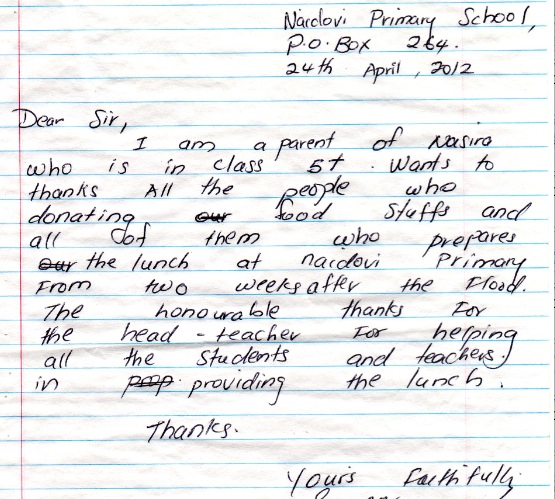 Naidovi Primary School,
P.O. Box 264.
24th April, 2012
Dear Sir,
I am a parent of Nasira
who is in class 5t. Wants to
thanks All the people who
donating our food stuffs and
all of them who prepares
our the lunch at naidovi Primary
From two weeks after the Flood.
The honourable thanks For
the head-teacher For helping
all the students and teachers.
in providing the lunch.
Thanks.
Yours Faithfully